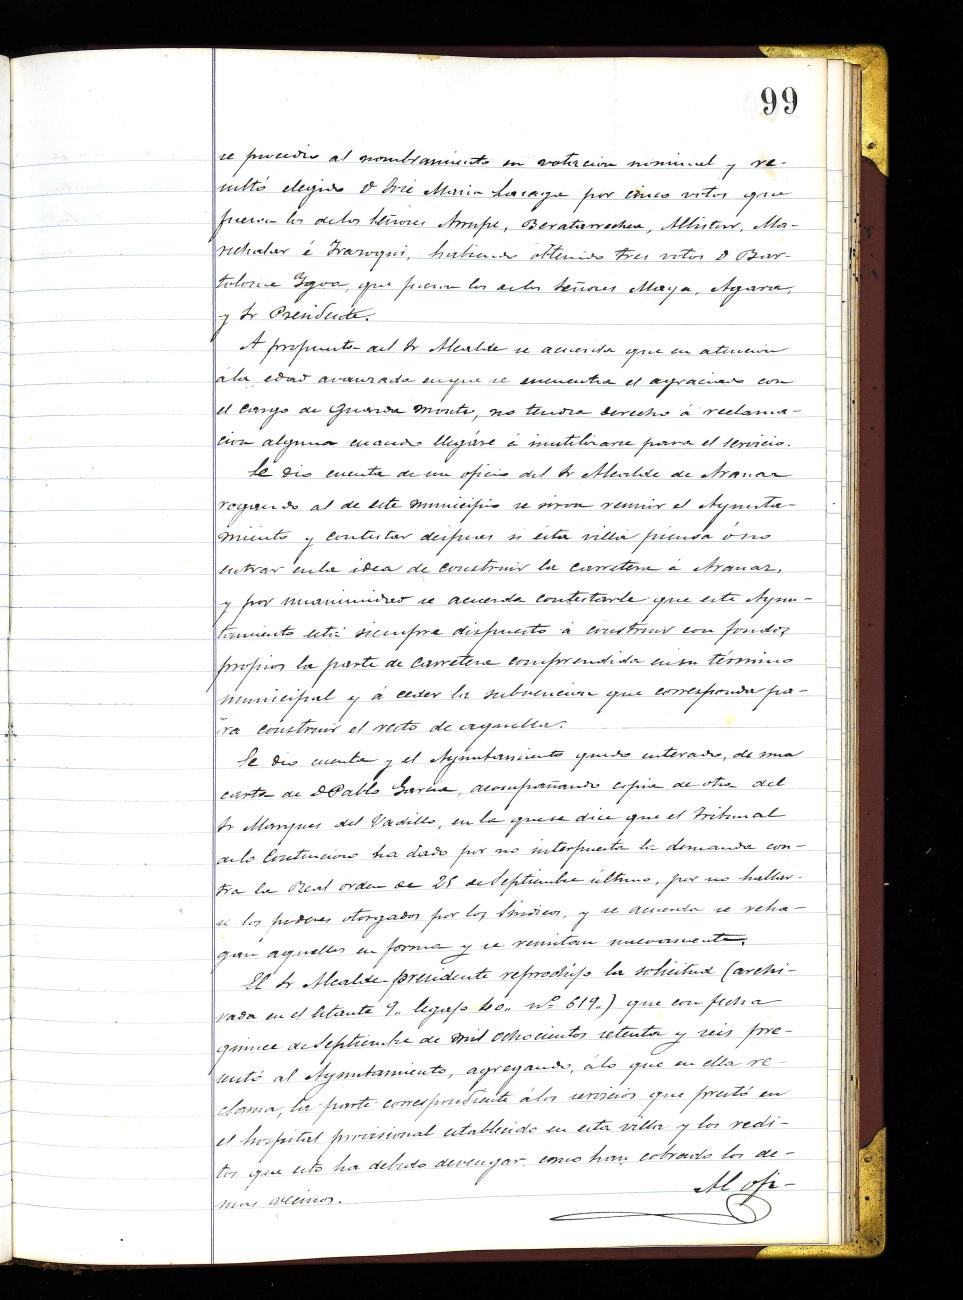 99
se procedió al nombramiento en votacion nominal y re-
sultó elegido D José Maria Lacaye por cinco votos que
fueron los de los Señores Arrupe, Beratarrechea, Albistur, Ma-
richalar é Irazoqui, habiendo obtenido tres votos D Bar-
tolome Ygoa, que fueron los de los Señores Maya, Ayarra,
y Sr Presidente.
A propuesta del Sr Alcalde se acuerda que en atencion
á la edad avanzada en que se encuentra el agraciado con
el cargo de Guarda monte, no tendra derecho á reclama-
cion alguna cuando llegáre á inutilizarse para el servicio.
Se dio cuenta de un oficio del Sr Alcalde de Aranaz
rogando al de este municipio se sirva reunir el Ayunta-
miento y contestar despues si esta villa piensa ó no
entrar en la idea de construir la carretera á Aranaz,
y por unanimidad se acuerda contestarle que este Ayun-
tamiento está siempre dispuesto á construir con fondos
propios la parte de carretera comprendida en su término
municipal y á ceder la subvencion que corresponda pa-
ra construir el resto de aquella.
Se dio cuenta y el Ayuntamiento quedo enterado, de una
carta de D Pablo Garcia, acompañando copia de otra del
Sr Marques del Vadillo, en la que se dice que el Tribunal
de lo Contencioso ha dado por no interpuesta la demanda con-
tra la Real orden de 25 de Septiembre último, por no hallar-
se los poderes otorgados por los Sindicos, y se acuerda se reha-
gan aquellos en forma y se remitan nuevamente.
El Sr Alcalde-presidente reprodujo la solicitud (archi-
vada en el Estante 9.. legajo 40.. nº 619..) que con fecha
quince de Septiembre de mil ochocientos setenta y seis pre-
sentó al Ayuntamiento, agregando, á lo que en ella re-
clama, la parte correspondiente á los servicios que prestó en
el hospital provisional establecido en esta villa y los redi-
tos que esto ha debido devengar como han cobrado los de-
mas vecinos.
Al ofi-